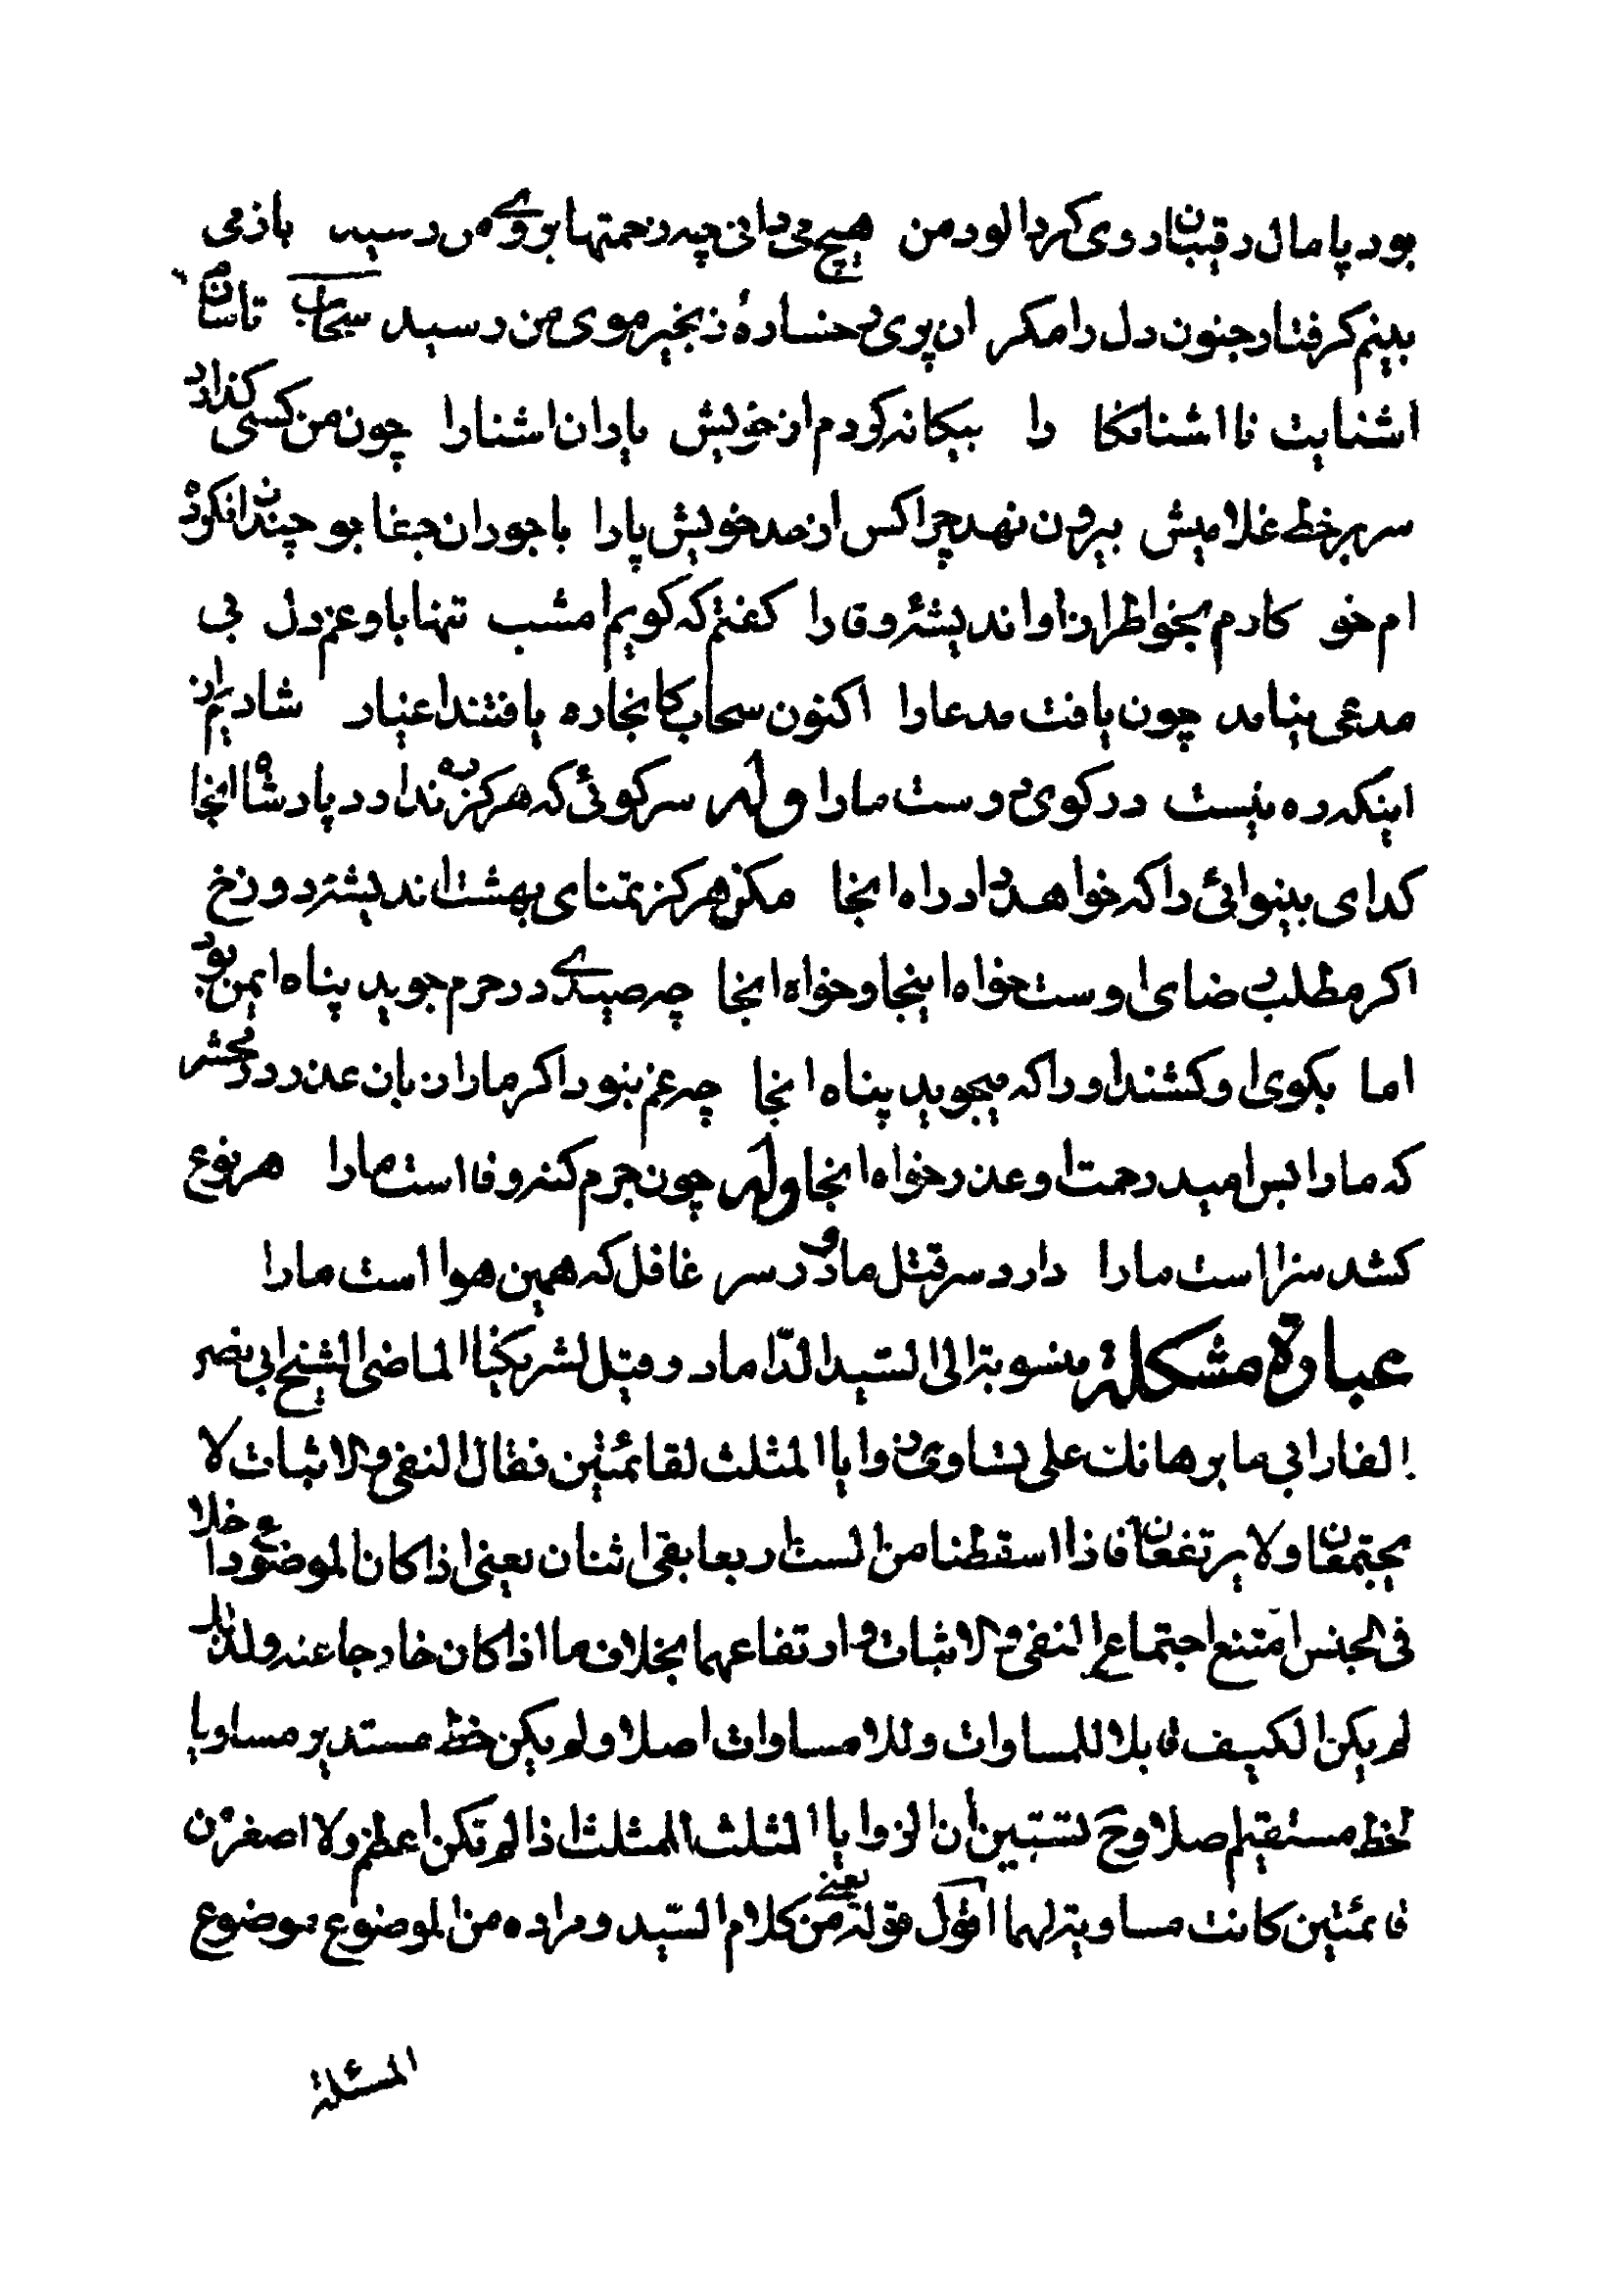 بود پامال رقیبان روی گردالود من هیچ می دانی چه زحمتها بروے من رسید باز می
بینم کرفتار جنون دل را مکر ان پری رخساره زنجیر موی من رسید سحاب تاسان
اشنایت نااشنا نکا را بیکانه کردم از خویش یاران اشنا را چون من کسی کذارد
سر بر خط غلامیش بیرون نهد چرا کس از حد خویش پا را با جور ان جفا جو چندان نکرده
ام خو کارم بخواطر از او اندیشۀ وفا را کفتم که کویم امشب تنها باو غم دل بی
مدعی نیامد چون یافت مدعا را اکنون سحاب کانجا ره یافتند اغیار شادیم از
اینکه ره نیست در کوی دوست ما را وله سر کوئی که هرکز ره ندارد پادشاه انجا
کدای بینوائی را که خواهد داد راه انجا مکن هرکز تمنای بهشت اندیشۀ دوزخ
اکر مطلب رضای اوست خواه اینجا و خواه انجا چه صیدے در حرم جوید پناه ایمن بود
اما بکوی او کشند او را که میجوید پناه انجا چه غم نبود اکر ما را زبان عذر در محشر
که ما را بس امید رحمت او عذر خواه انجا وله چون جرم کنه وفا است ما را هر نوع
کشد سزا است ما را دارد سر قتل ما و در سر غافل که همین هوا است ما را
عبارة مشکلة منسوبة الی السیّد الدّاماد وقیل لشریکنا الماضی الشیخ ابی نصر
الفارابی ما برهانك علی تساوی زوایا المثلث لقائمتین فقال النفی والاثبات لا
یجتمعان ولا یرتفعان فاذا اسقطنا من الست اربعا بقی اثنان یعنی اذا کان الموضوع داخلا
فی الجنس امتنع اجتماع النفی والاثبات وارتفاعهما بخلاف ما اذا کان خارجا عنه ولذلك
لم یکن الکیف قابلا للمساوات وللامساوات اصلا ولم یکن خط مستدیر مساویا
لخط مستقیم اصلا وح لتبین ان الزوایا الثلث المثلث اذا لم تکن اعظم ولا اصغر من
قائمتین کانت مساویة لهما اقول قوله یعنے من کلام السّید ومراده من الموضوع موضوع
المسئلة